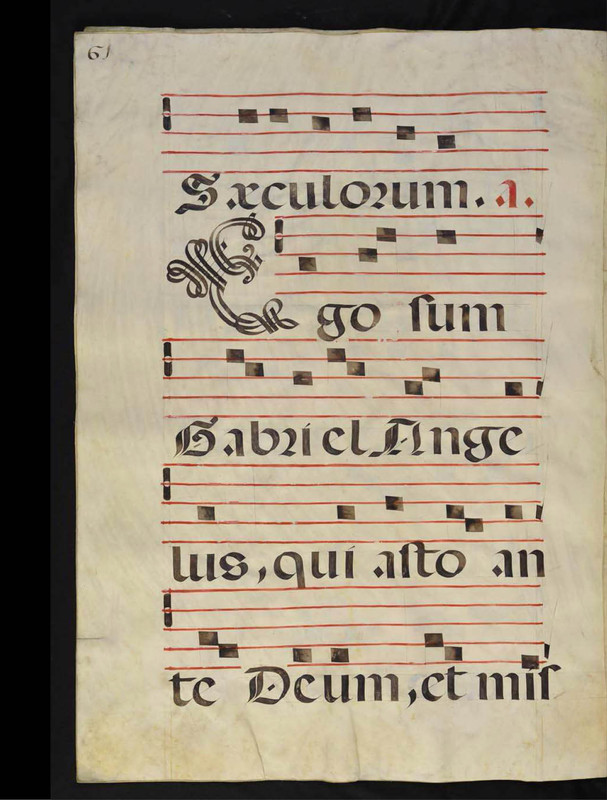 61
Sæculorum. a.
Ego sum
Gabriel Ange
lus, qui asto an
te Deum, et miſ